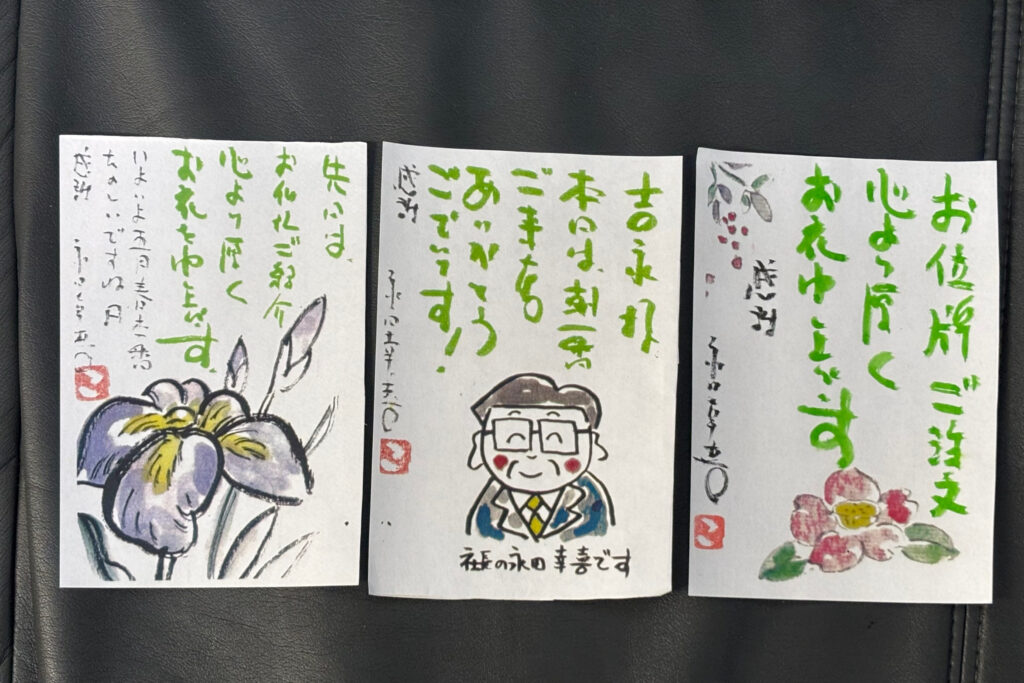 先日は、
ご紹介
心より厚く
お礼を申し上げます。
いよいよ
たのしいですね
感謝
永田幸喜
吉永様
本日は、朝一番
ご来店
ありがとう
ございます!
感謝
永田幸喜
社長の永田 幸喜です
お位牌ご注文
心より厚く
お礼申し上げます
感謝
永田幸喜